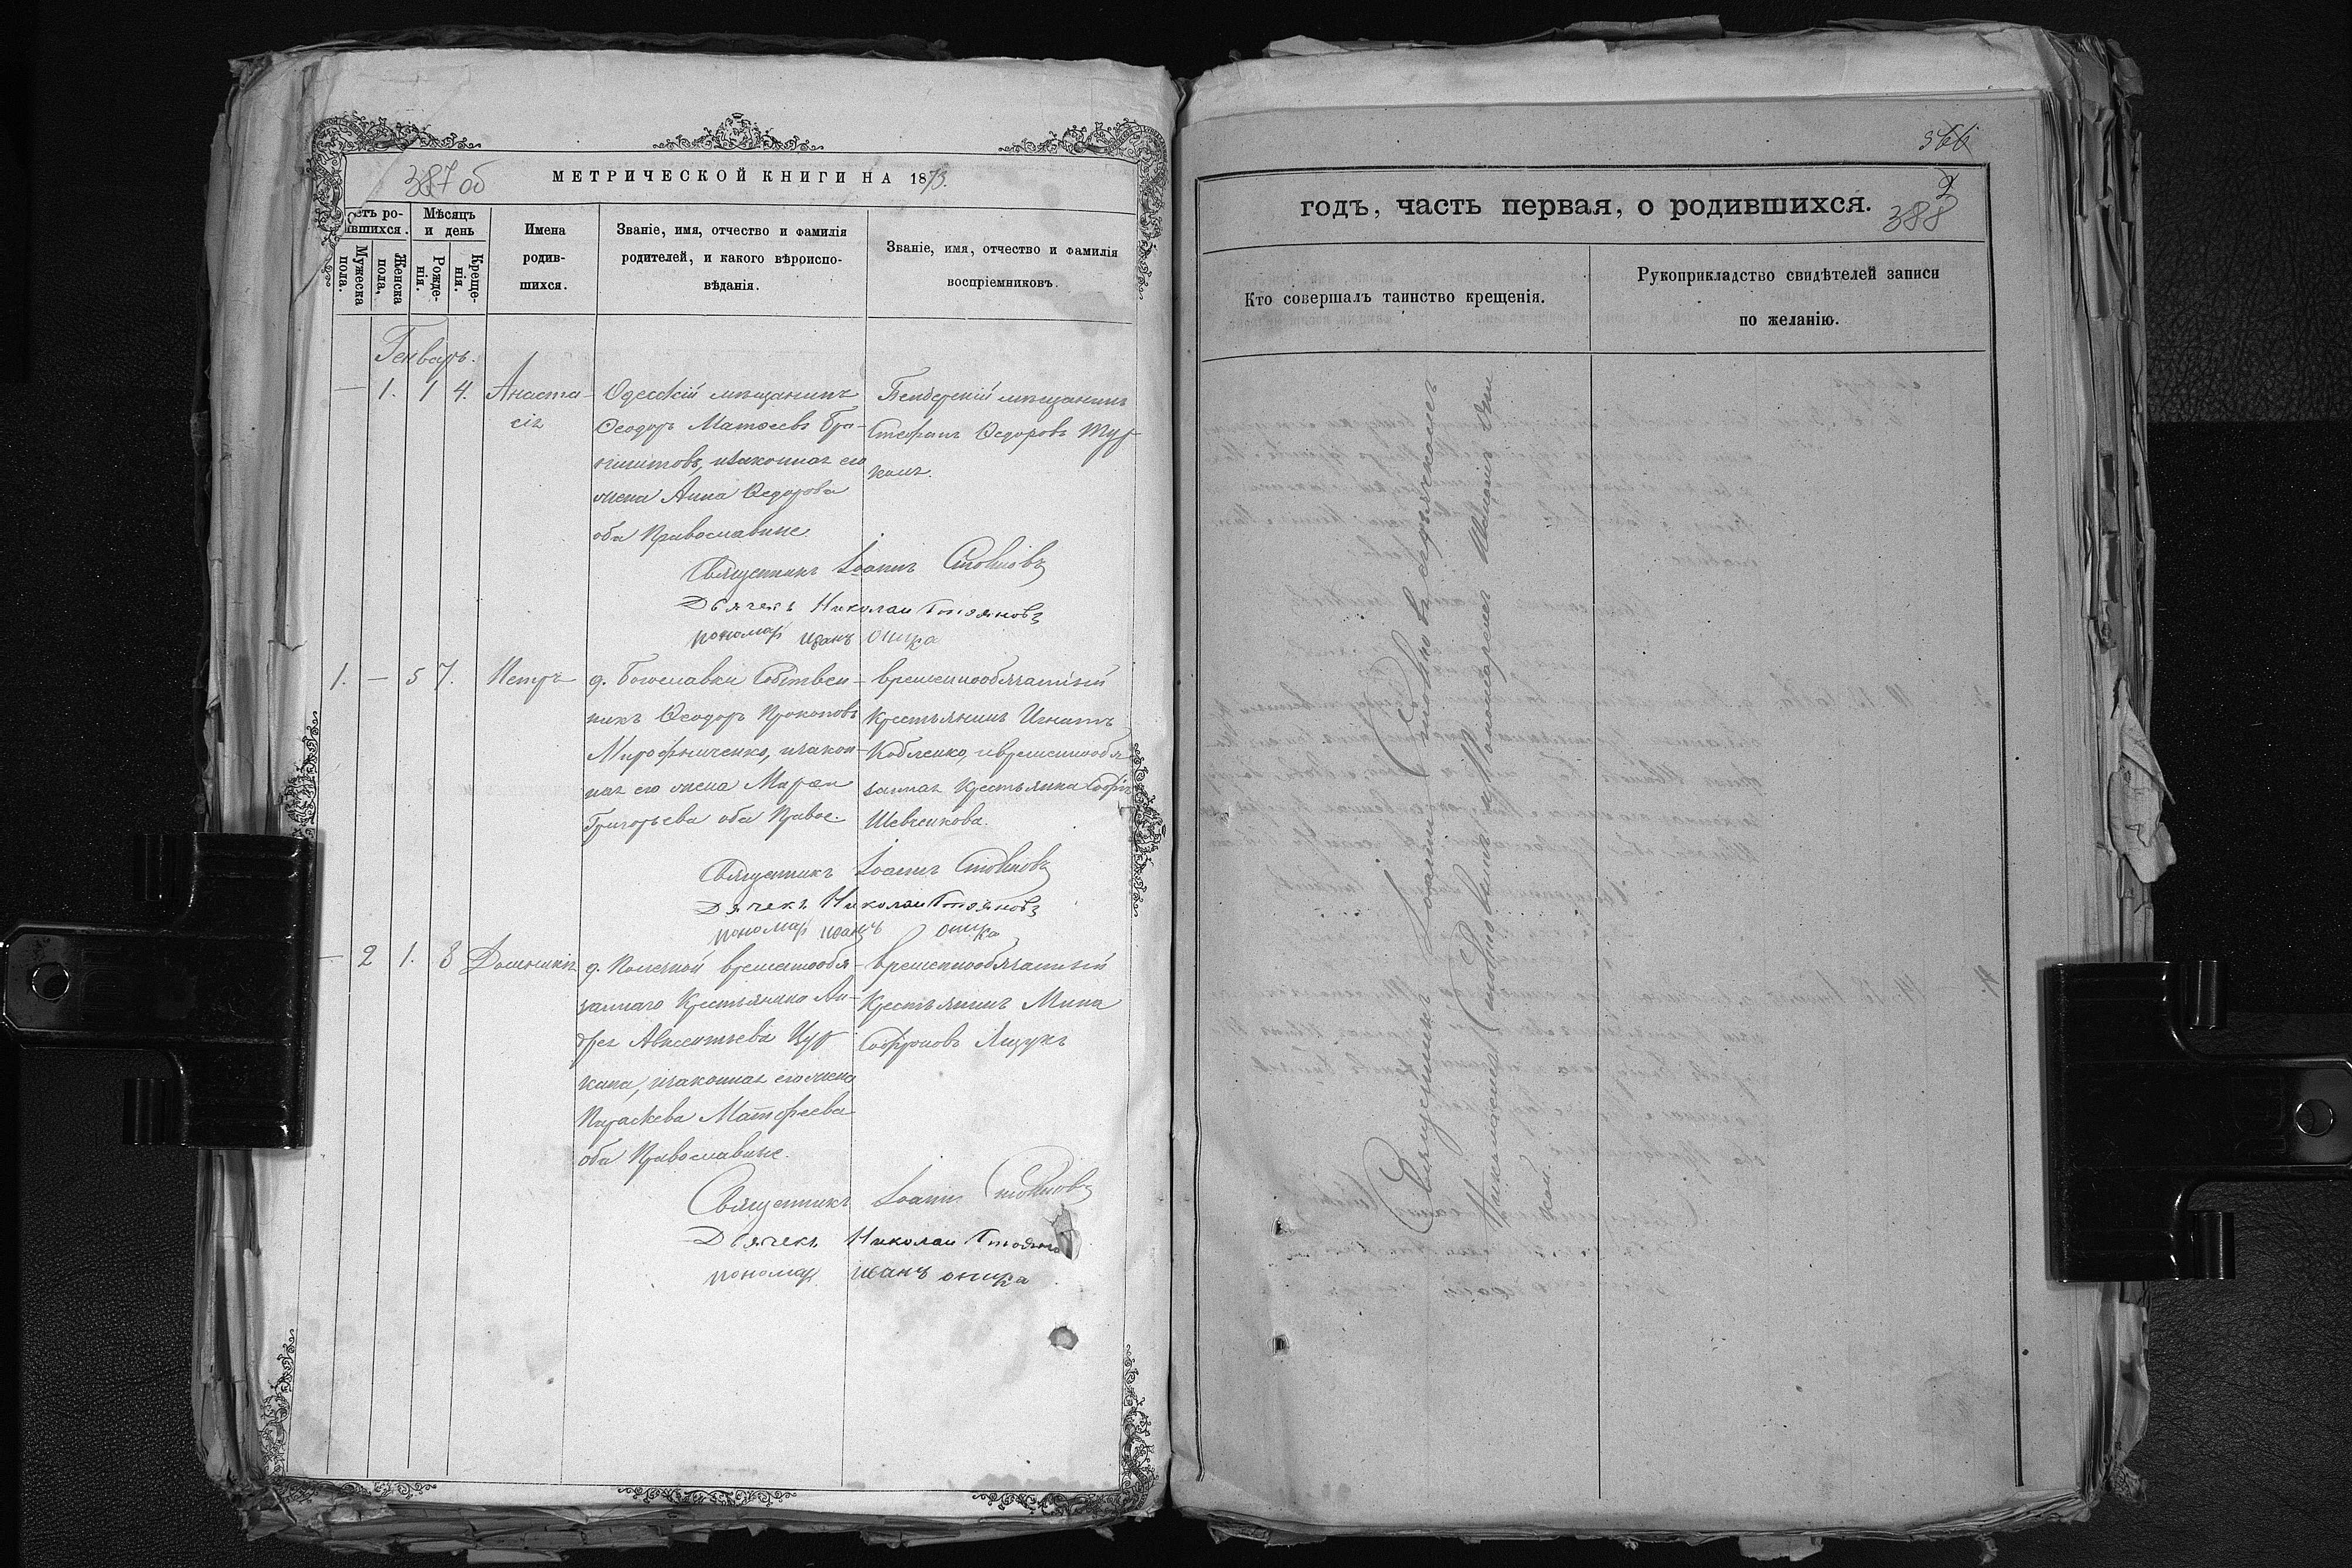 387 об
МЕТРИЧЕСКОЙ КНИГИ НА 1873.
етъ ро-
вшихся.
Мужеска
пола.
Женска
пола.
Мѣсяцъ
и день
Рожде-
нія.
Креще-
нія.
Имена
родив-
шихся.
Званіе, имя, отчество и фамилія
родителей, и какого вѣроиспо-
вѣданія.
Званіе, имя, отчество и фамилія
воспріемниковъ.
Генварь.
— 1. 1 4.
Анаста-
сія
Одесскій мѣщанинъ
Ѳеодоръ Матѳеевъ
и законная его
жена Анна Ѳедорова
оба Православные.
Бендерскій мѣщанинъ
Стефанъ Ѳедоровъ Тур
канъ.
Священникъ Іоаннъ Стойковъ
Дьячекъ Николай Стояновъ
пономарь Иванъ Оника
1. — 5 7.
Петръ
д. Богославки Собствен-
никъ Ѳеодоръ Прокоповъ
Мирофниченко, и закон-
ная его жена Марѳа
Григорьева оба Правос.
временнообязанный
Крестьянинъ Игнатъ
Кобленко, и временнообя
занная Крестьянка Софія
Шевченкова.
Священникъ Іоаннъ Стойковъ
Дячекъ Николай Стояновъ
пономарь Иванъ Оника
— 2 1. 8
Домникія
д. временнообя-
заннаго Крестьянина Ан-
дрея Авксентьева Цур
кана, и законная его жена
Параскева Матфеева
оба Православные.
временнообязанный
Крестьянинъ Мина
Софроновъ Лизукъ
Священникъ Іоаннъ Стойковъ
Дьячекъ Николай Стояно
пономарь Иванъ Оника
366
2
388
годъ, часть первая, о родившихся.
Кто совершалъ таинство крещенія.
Рукоприкладство свидѣтелей записи
по желанію.
Священникъ Іоаннъ Стойковъ съ дьячкомъ
Николаемъ Стояновымъ и Пономаремъ Иваномъ Они
кой.